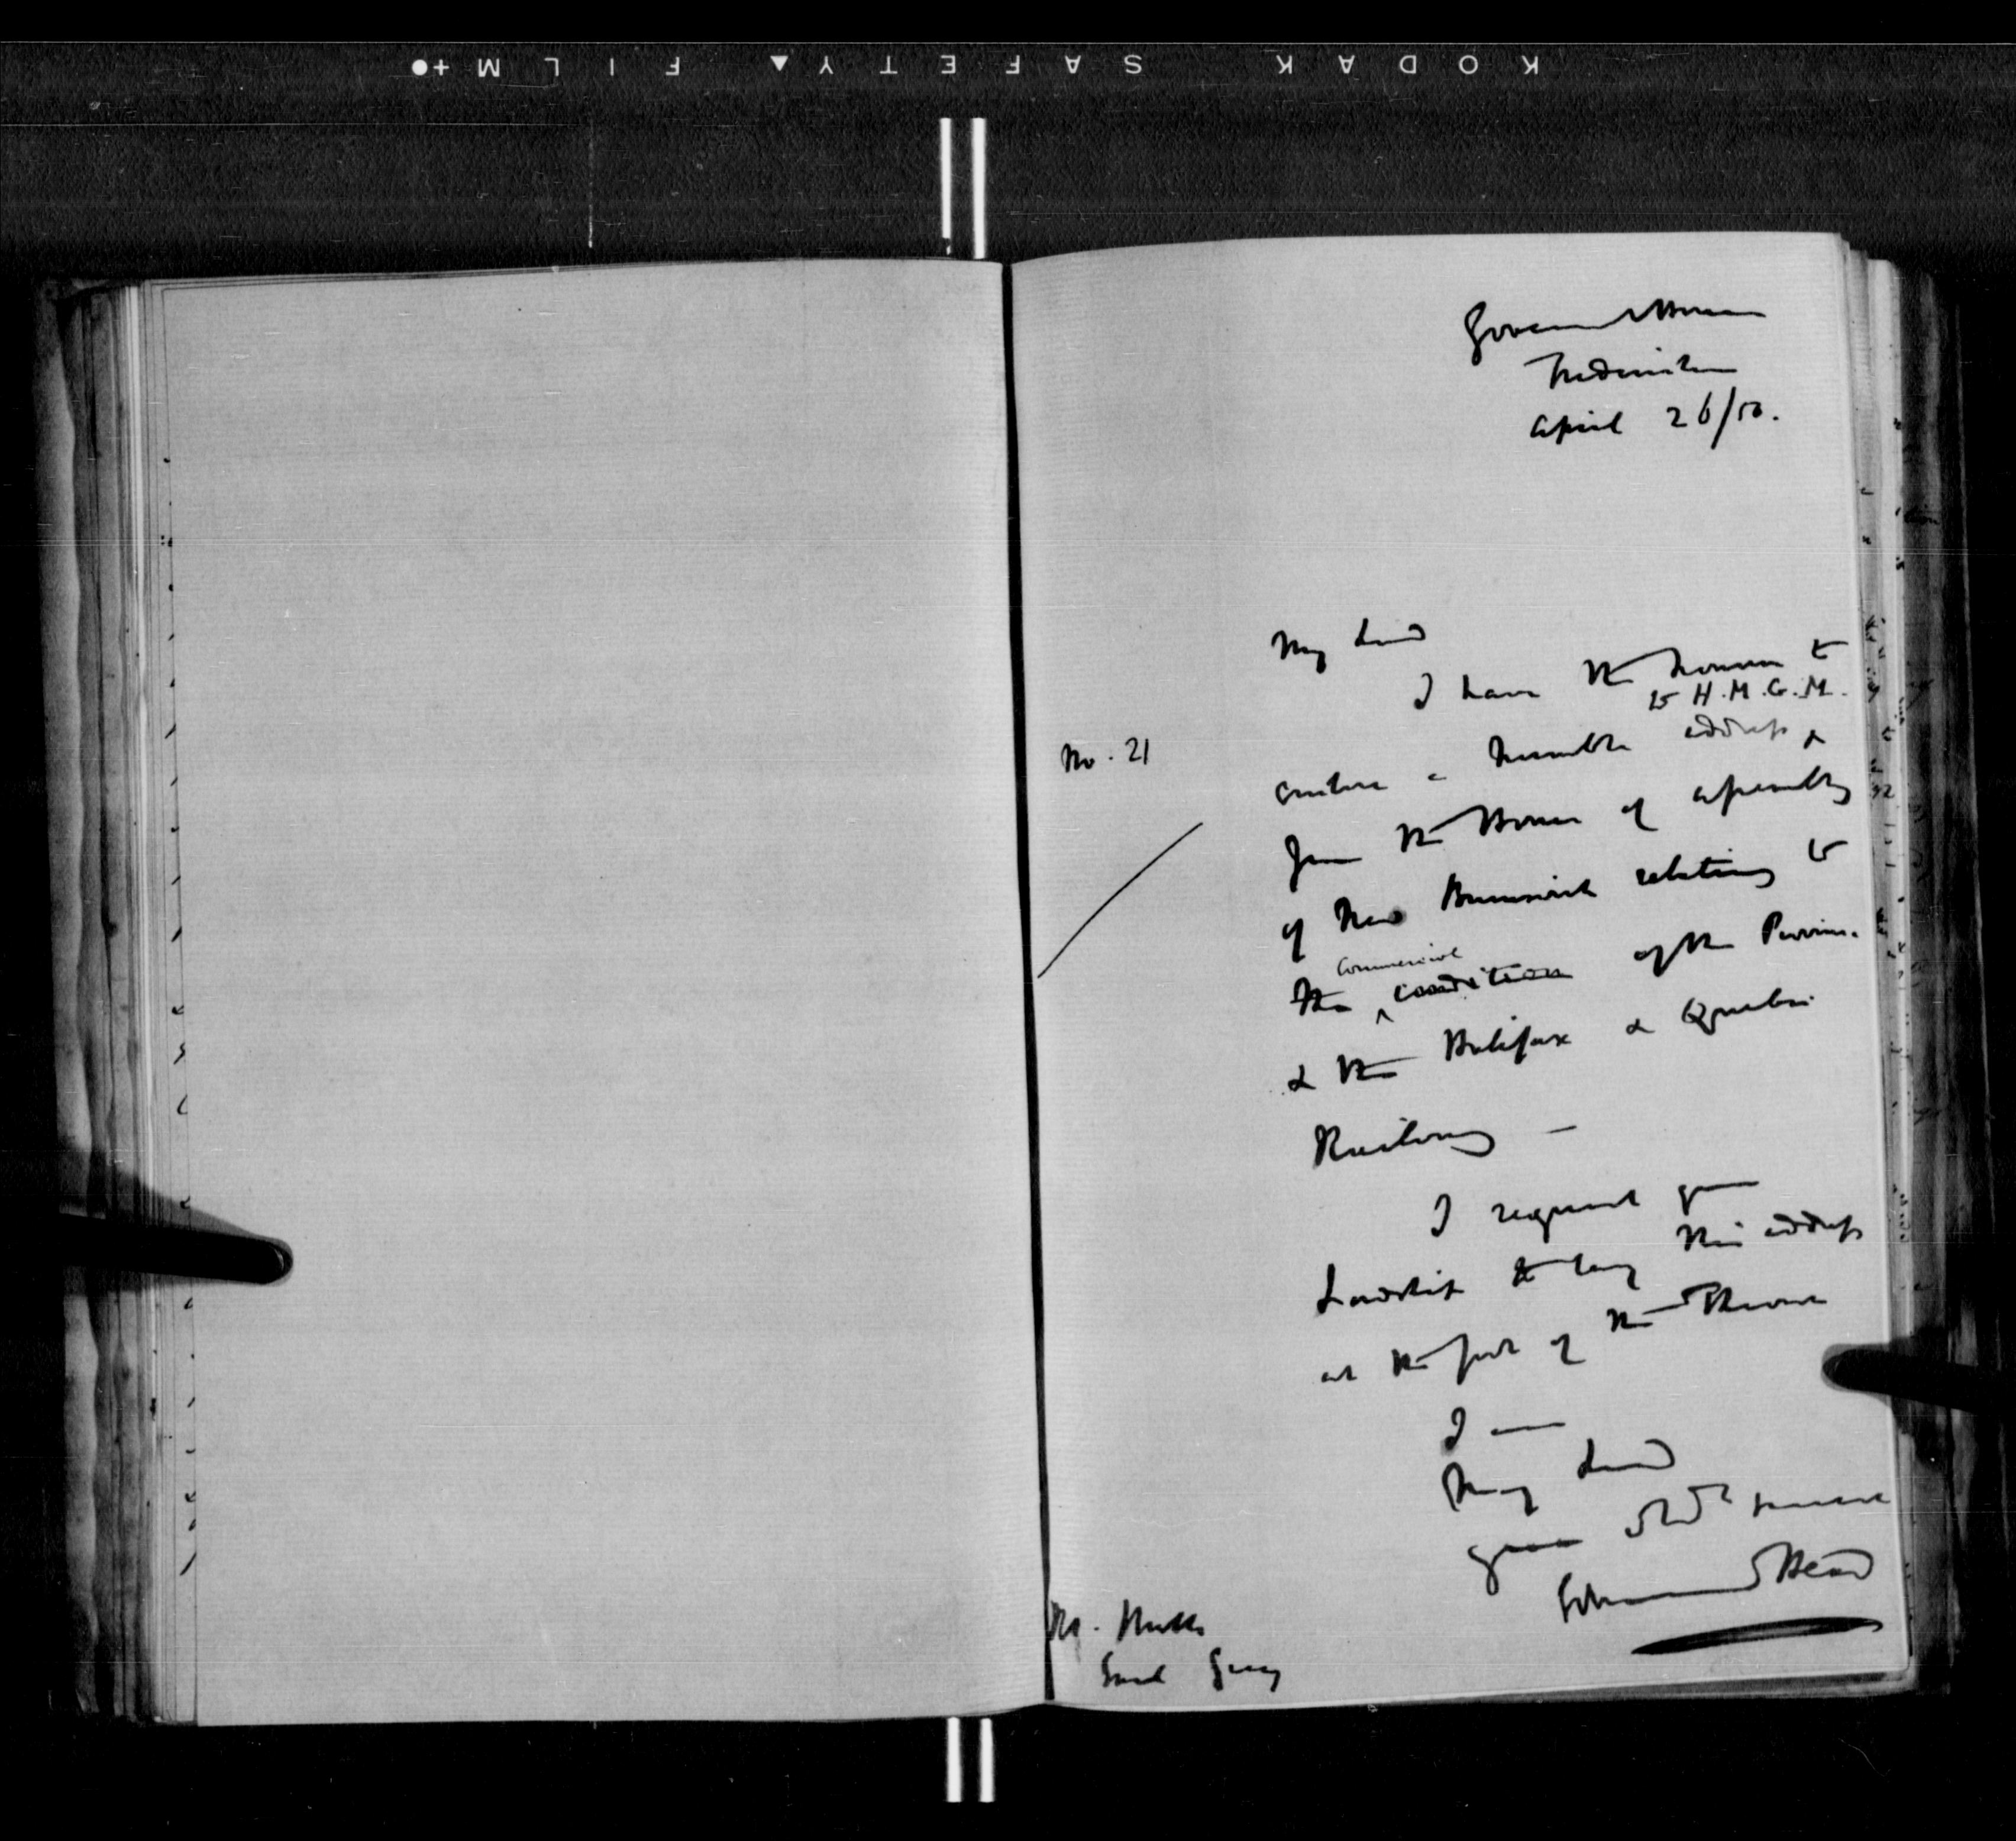 KODAK SAFETY FILM
Government House
Fredericton
April 26/50.
My Lord
I have the honour to
to H.M.G.M.
No. 21
enclose a humble address &
from the House of Assembly
of New Brunswick relating to
commercial
the condition of the Province
& the Halifax & Quebec
Railway —
I request your
Lordship to lay this address
at the foot of the Throne
I am
My Lord
your servant
Edmund Head
Rt. Honble
Earl Grey